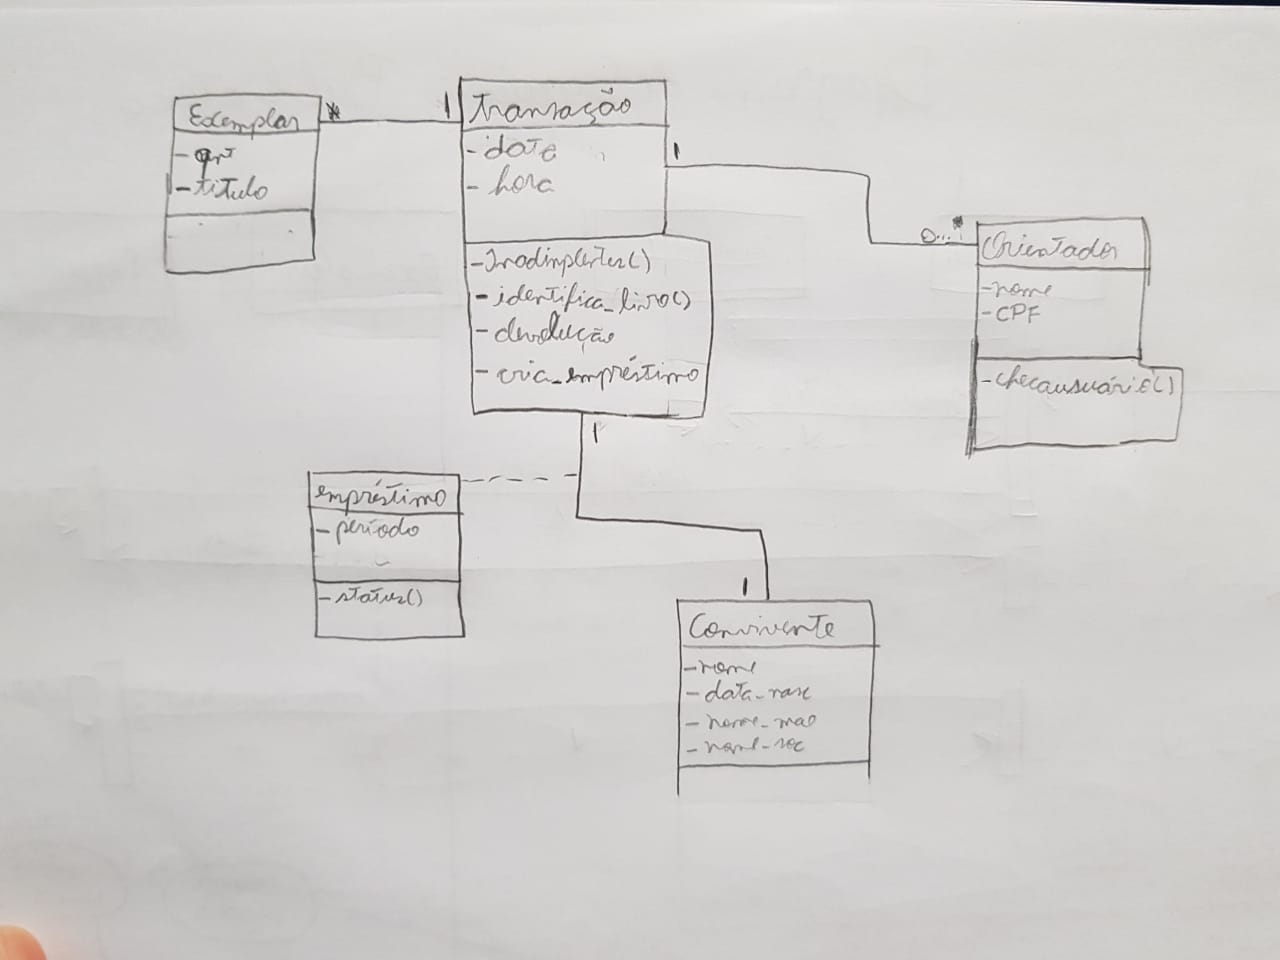 Exemplar
*
1
- qrt
- titulo
Transação
- date
- hora
1
- identifica_livro()
- devolução
- cria_empréstimo
0...*
Orientador
- nome
- CPF
- checausuário()
1
empréstimo
- período
- status()
1
Convivente
- nome
- data_nasc
- nome_mae
- nome_soc